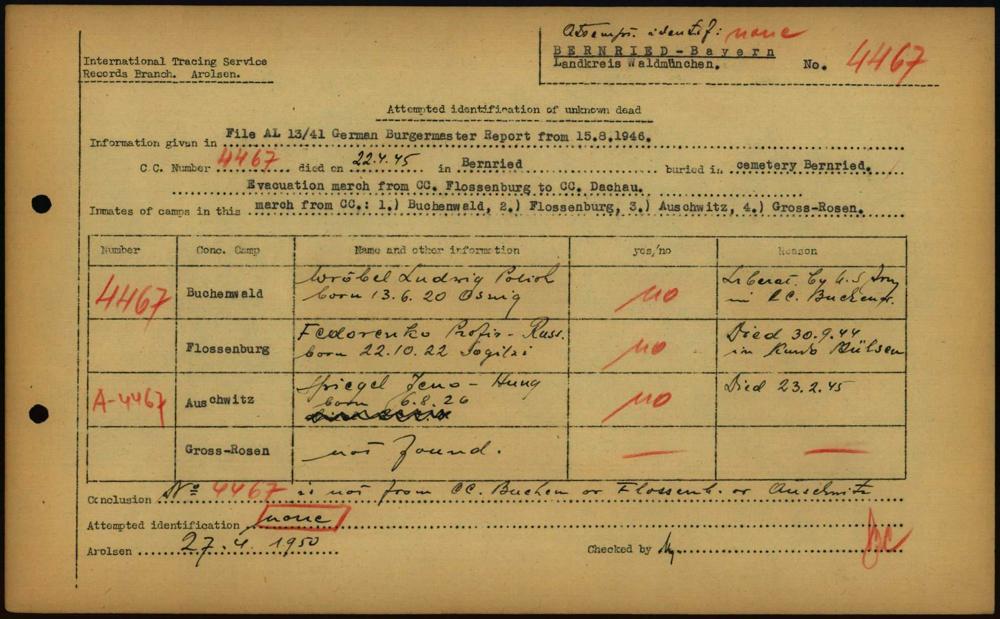 identif: none
BERNRIED-Bayern
Landkreis Waldmünchen.
No. 4467
International Tracing Service
Records Branch. Arolsen.
Attempted identification of unknown dead
Information given in File AL 13/41 German Burgermaster Report from 15.8.1946.
C.C. Number 4467 died on 22.4.45 in Bernried buried in cemetery Bernried.
Evacuation march from CC. Flossenburg to CC. Dachau.
Inmates of camps in this march from CC.: 1.) Buchenwald, 2.) Flossenburg, 3.) Auschwitz, 4.) Gross-Rosen.
Number Conc. Camp Name and other information yes/no Reason
4467 Buchenwald Wróbel Ludwig Polish no Liberat. by U.S Army
born 13.6.20 in CC.
Flossenburg Fedorenko - Russ. no Died 30.9.44
born 22.10.22 in
A-4467 Auschwitz Spiegel Jeno - Hung no Died 23.2.45
born 6.8.26
Gross-Rosen not found. — —
Conclusion No 4467 is not from CC. Buchen or Flossenb. or Auschwitz
Attempted identification none
Arolsen 27.4. 1950
Checked by